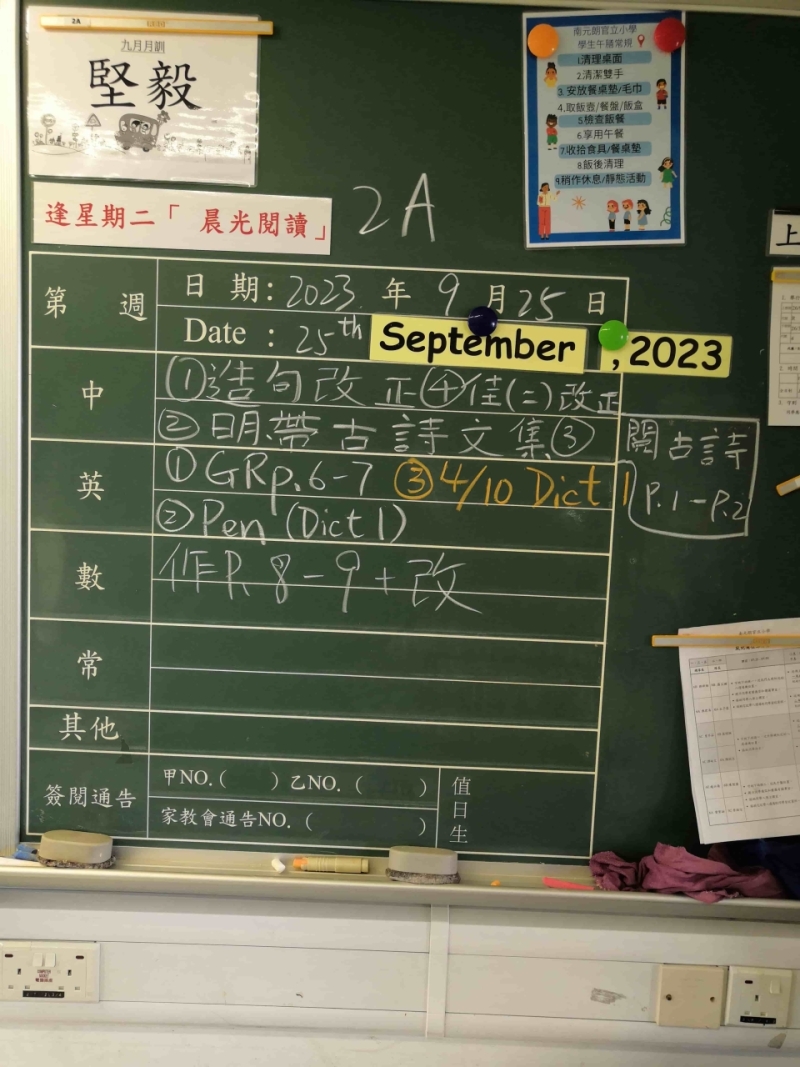 2A
九月月訓
堅毅
逢星期二「 晨光閱讀」
2A
南元朗官立小學
學生午膳常規
1.清理桌面
2.清潔雙手
3.安放餐桌墊/毛巾
4.取飯壺/餐盤/飯盒
5.檢查飯餐
6.享用午餐
7.收拾食具/餐桌墊
8.飯後清理
9.稍作休息/靜態活動
上
第 週
日 期: 2023 年 9 月 25 日
Date : 25th September , 2023
中
①造句改正④佳(二)改正
②明帶古詩文集③
閱古詩
P.1-P.2
英
①GRp.6-7 ③4/10 Dict 1
②Pen (Dict 1)
數
作P.8-9+改
常
其他
簽閱通告
甲NO.( ) 乙NO.( )
家教會通告NO.( )
值日生